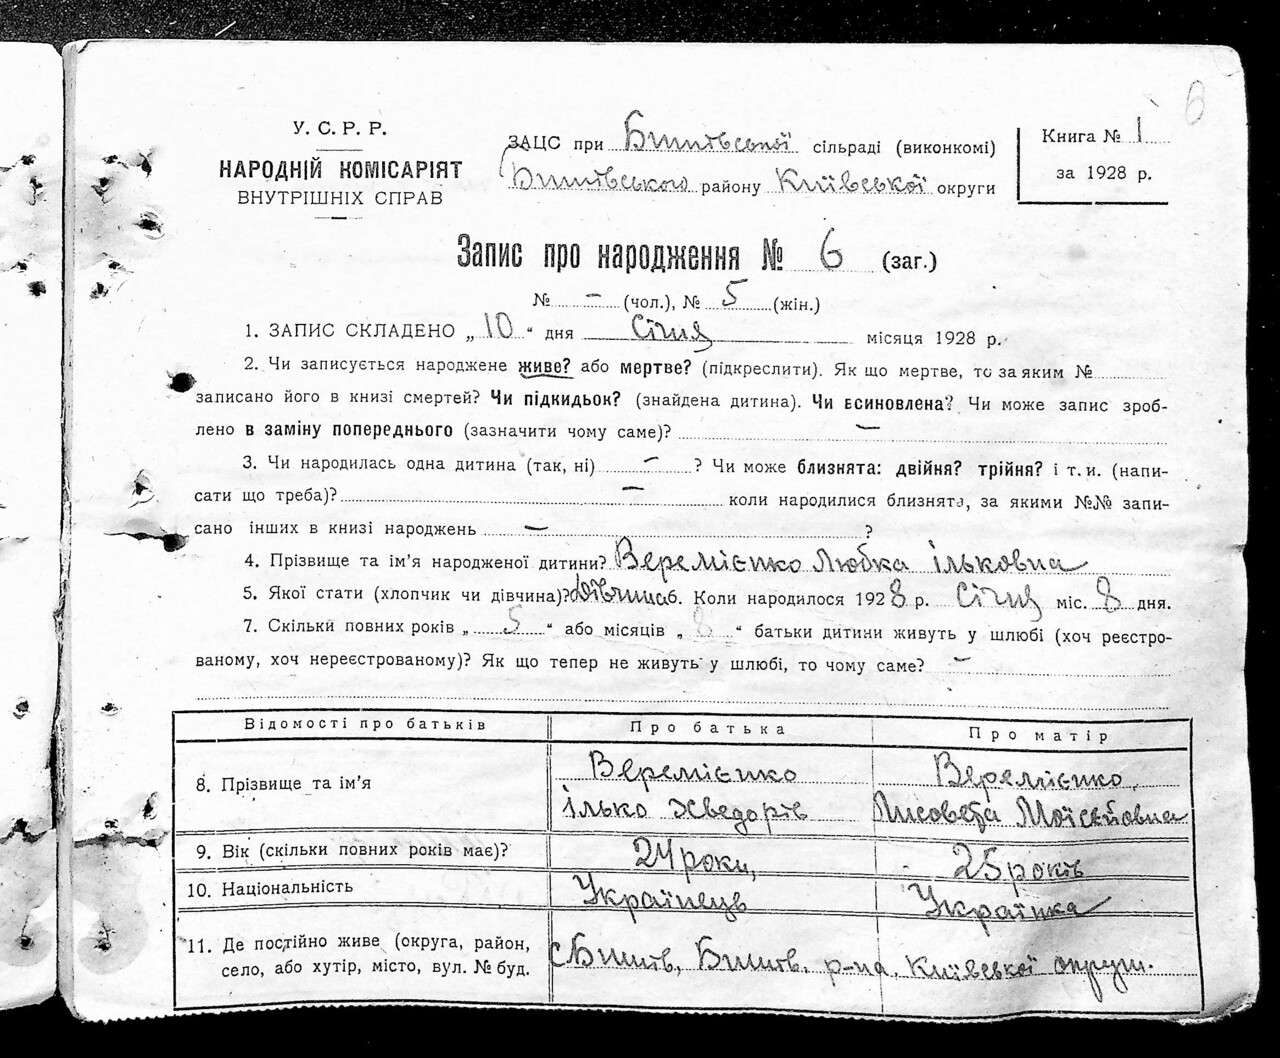 6
У. С. Р. Р.
НАРОДНІЙ КОМІСАРІЯТ
ВНУТРІШНІХ СПРАВ
ЗАЦС при Бишівської сільраді (виконкомі)
Бишівського району Київської округи
Книга № 1
за 1928 р.
Запис про народження № 6 (заг.)
№ – (чол.), № 5 (жін.)
1. ЗАПИС СКЛАДЕНО „10“ дня Січня місяця 1928 р.
2. Чи записується народжене живе? або мертве? (підкреслити). Як що мертве, то за яким №
записано його в книзі смертей? Чи підкидьок? (знайдена дитина). Чи всиновлена? Чи може запис зроб-
лено в заміну попереднього (зазначити чому саме)? –
3. Чи народилась одна дитина (так, ні) – ? Чи може близнята: двійня? трійня? і т. и. (напи-
сати що треба)? – коли народилися близнята, за якими №№ запи-
сано інших в книзі народжень – ?
4. Прізвище та ім’я народженої дитини? Веремієнко Любка Ільковна
5. Якої стати (хлопчик чи дівчина)? Дівчина 6. Коли народилося 1928 р. Січня міс. 8 дня.
7. Скільки повних років „ 5 “ або місяців „ 8 “ батьки дитини живуть у шлюбі (хоч реєстро-
ваному, хоч нереєстрованому)? Як що тепер не живуть у шлюбі, то чому саме? –
Відомості про батьків Про батька Про матір
8. Прізвище та ім’я Веремієнко Ілько Хведорів Веремієнко, Лисовета Моісейовна
9. Вік (скільки повних років має)? 24 роки, 25 років
10. Національність Українець Українка
11. Де постійно живе (округа, район,
село, або хутір, місто, вул. № буд. с. Бишів, Бишів. р-на. Київської округи.